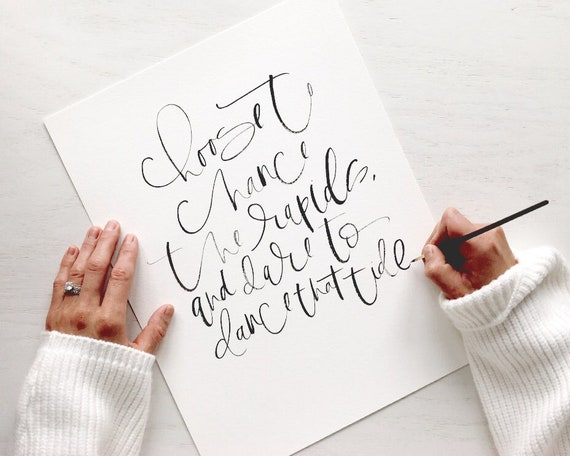 choose to
chance
the rapids,
and dare to
dance that tide